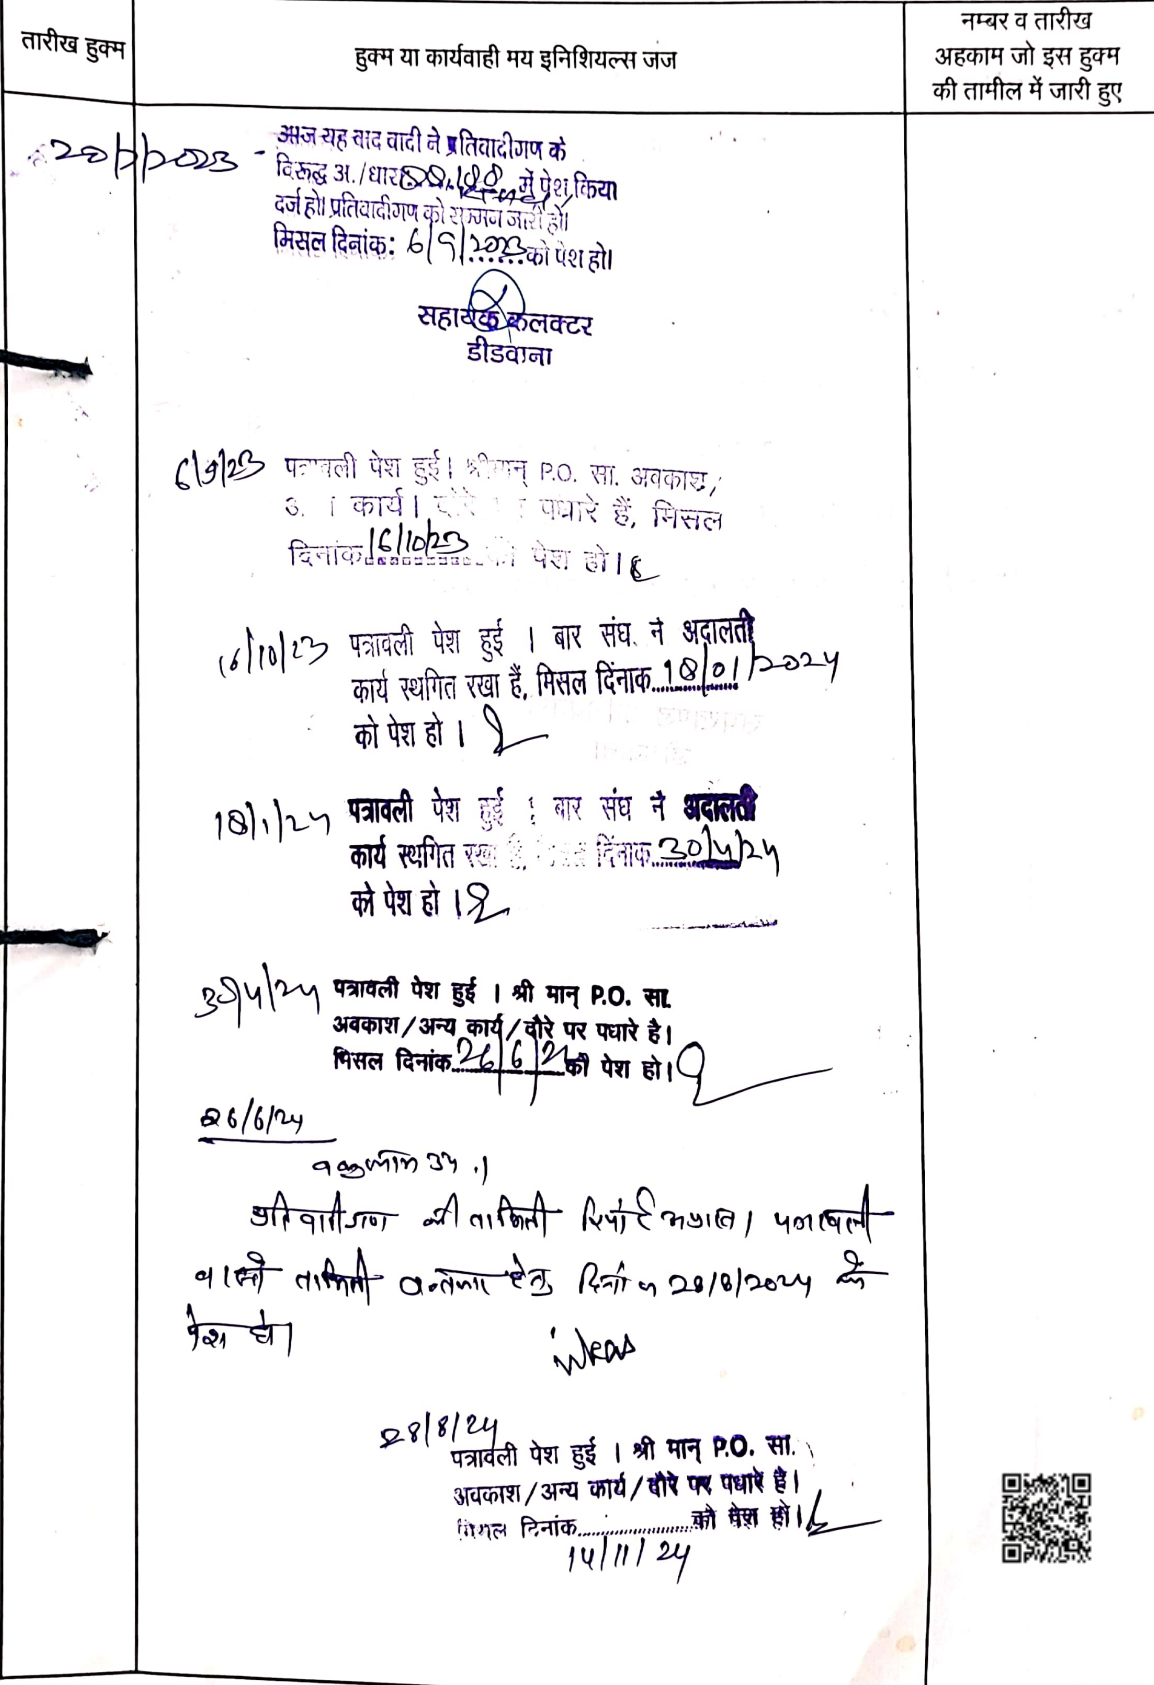 तारीख हुक्म
हुक्म या कार्यवाही मय इनिशियल्स जज
नम्बर व तारीख
अहकाम जो इस हुक्म
की तामील में जारी हुए
आज यह वाद वादी ने प्रतिवादीगण के
विरूद्ध अ./धारा में पेश किया
दर्ज हो। प्रतिवादीगण को सम्मन जारी हो।
मिसल दिनांक: 6/9/2023 को पेश हो।
सहायक कलक्टर
डीडवाना
6/9/23 पत्रावली पेश हुई। श्रीमान् P.O. सा. अवकाश/
कार्य। दौरे पधारे हैं, मिसल
दिनांक 16/10/23 पेश हो।
16/10/23 पत्रावली पेश हुई । बार संघ ने अदालती
कार्य स्थगित रखा हैं, मिसल दिंनाक 18/01/2024
को पेश हो ।
18/1/24 पत्रावली पेश हुई । बार संघ ने अदालती
कार्य स्थगित रखा दिंनाक 30/4/24
को पेश हो ।
30/4/24 पत्रावली पेश हुई । श्री मान् P.O. सा.
अवकाश/अन्य कार्य/दौरे पर पधारे है।
मिसल दिनांक 26/6/24 को पेश हो।
26/6/24
प्रतिवादीगण की तामिली रिपोर्ट अप्राप्त। पत्रावली
वास्ते तामिली हेतु दिनांक 28/8/2024 को
पेश हो।
28/8/24
पत्रावली पेश हुई । श्री मान् P.O. सा.
अवकाश/अन्य कार्य/दौरे पर पधारे है।
मिसल दिनांक को पेश हो।
14/11/24